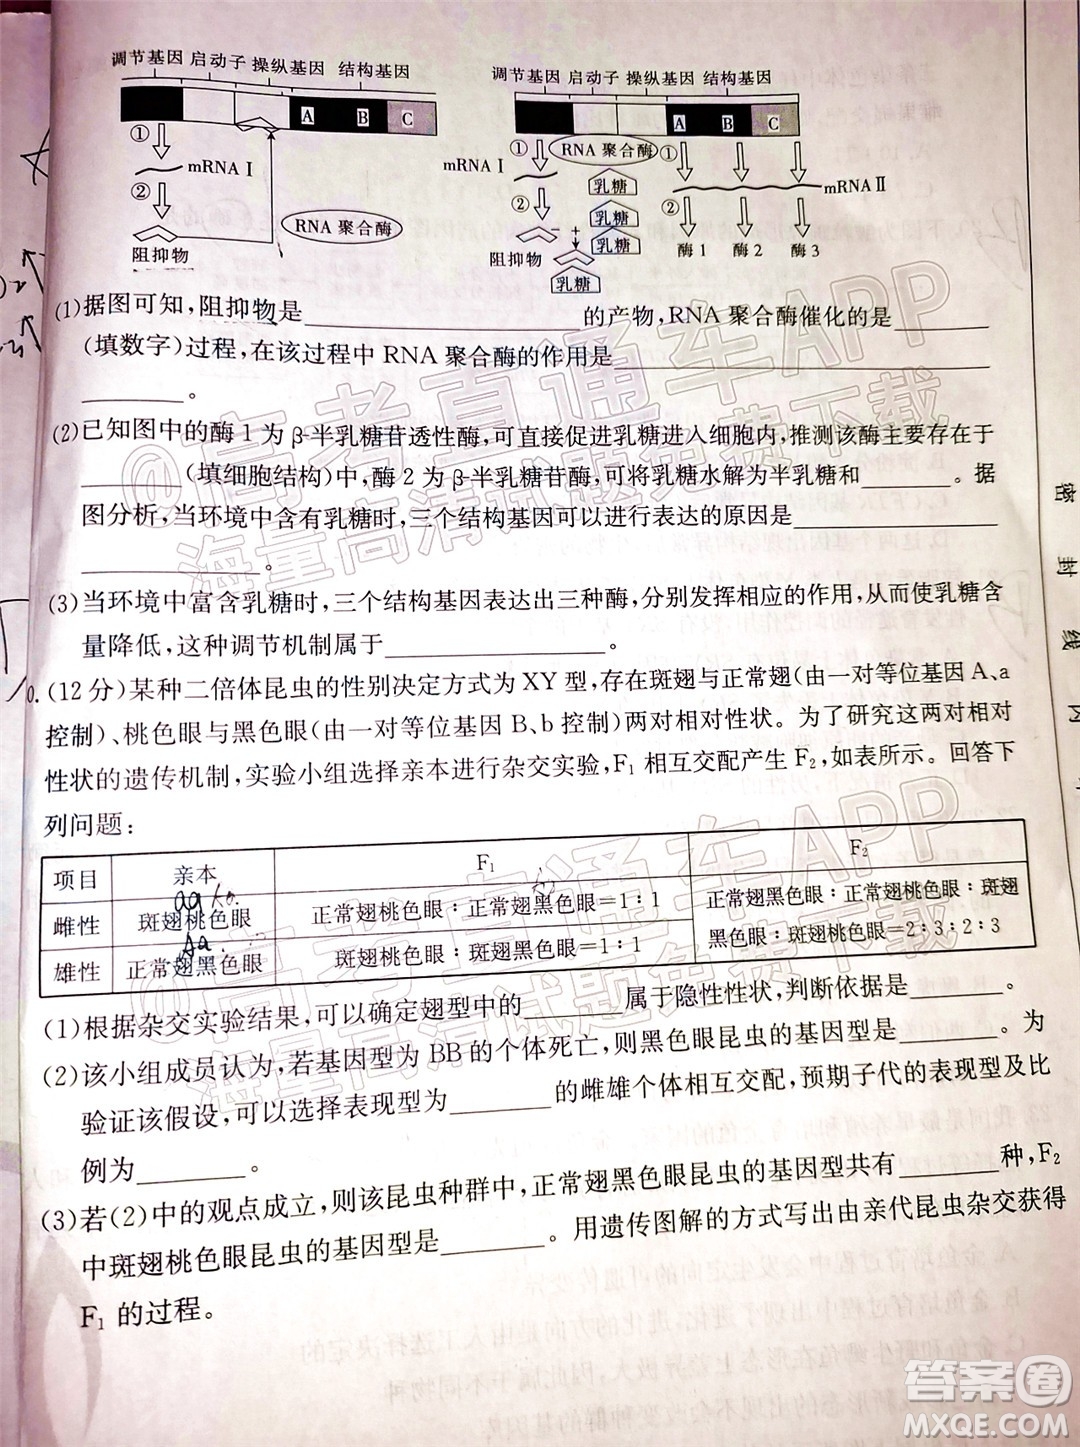 调节基因 启动子 操纵基因 结构基因
A B C
① mRNA Ⅰ
②
RNA 聚合酶
阻抑物
调节基因 启动子 操纵基因 结构基因
A B C
RNA 聚合酶
mRNA Ⅰ ① ③
乳糖
mRNA Ⅱ
② 乳糖 ④
+ 乳糖
阻抑物 乳糖
酶 1 酶 2 酶 3
(1)据图可知,阻抑物是________的产物,RNA 聚合酶催化的是________
(填数字)过程,在该过程中 RNA 聚合酶的作用是________
________。
(2)已知图中的酶 1 为 β-半乳糖苷透性酶,可直接促进乳糖进入细胞内,推测该酶主要存在于
________(填细胞结构)中,酶 2 为 β-半乳糖苷酶,可将乳糖水解为半乳糖和________。据
图分析,当环境中含有乳糖时,三个结构基因可以进行表达的原因是________
________。
(3)当环境中富含乳糖时,三个结构基因表达出三种酶,分别发挥相应的作用,从而使乳糖含
量降低,这种调节机制属于________。
0.(12 分)某种二倍体昆虫的性别决定方式为 XY 型,存在斑翅与正常翅(由一对等位基因 A、a
控制)、桃色眼与黑色眼(由一对等位基因 B、b 控制)两对相对性状。为了研究这两对相对
性状的遗传机制,实验小组选择亲本进行杂交实验,F₁ 相互交配产生 F₂,如表所示。回答下
列问题:
项目 亲本 F₁ F₂
雌性 斑翅桃色眼 正常翅桃色眼∶正常翅黑色眼=1∶1 正常翅黑色眼∶正常翅桃色眼∶斑翅
黑色眼∶斑翅桃色眼=2∶3∶2∶3
雄性 正常翅黑色眼 斑翅桃色眼∶斑翅黑色眼=1∶1
(1)根据杂交实验结果,可以确定翅型中的________属于隐性性状,判断依据是________。
(2)该小组成员认为,若基因型为 BB 的个体死亡,则黑色眼昆虫的基因型是________。为
验证该假设,可以选择表现型为________的雌雄个体相互交配,预期子代的表现型及比
例为________。
(3)若(2)中的观点成立,则该昆虫种群中,正常翅黑色眼昆虫的基因型共有________种,F₂
中斑翅桃色眼昆虫的基因型是________。用遗传图解的方式写出由亲代昆虫杂交获得
F₁ 的过程。
密
封
线
@高考直通车APP
海量高清试题免费下载
@高考直通车APP
海量高清试题免费下载
答案圈
MXQE.COM